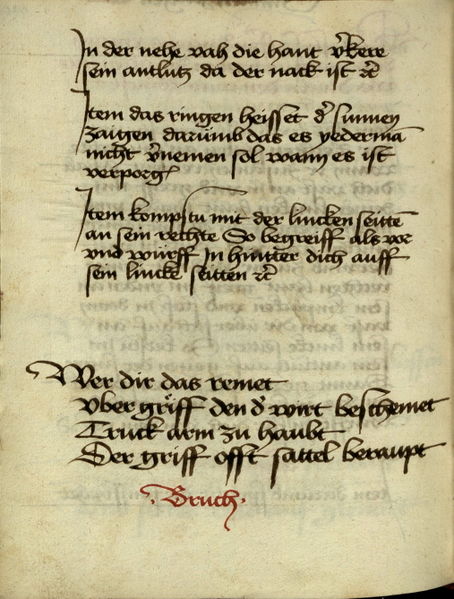 In der nehe vah die hant v̄kere
sein antlutz da der nack ist ꝛc̄
Item das ringen heisset d᷑ sunnen
zaigen darumb das es yederma᷑
nicht v̄nemen sol wann es ist
verporgn̄
Item kompstu mit der lincken seitte᷑
an sein rechte So begreiff als vor
vnd würff In hintter dich auff
sein lincke seitten ꝛc̄
Wer dir das remet
Vber griff den d᷑ wirt beschemet
Truck arm zu haubt
Der griff offt sattel beraupt
Bruch